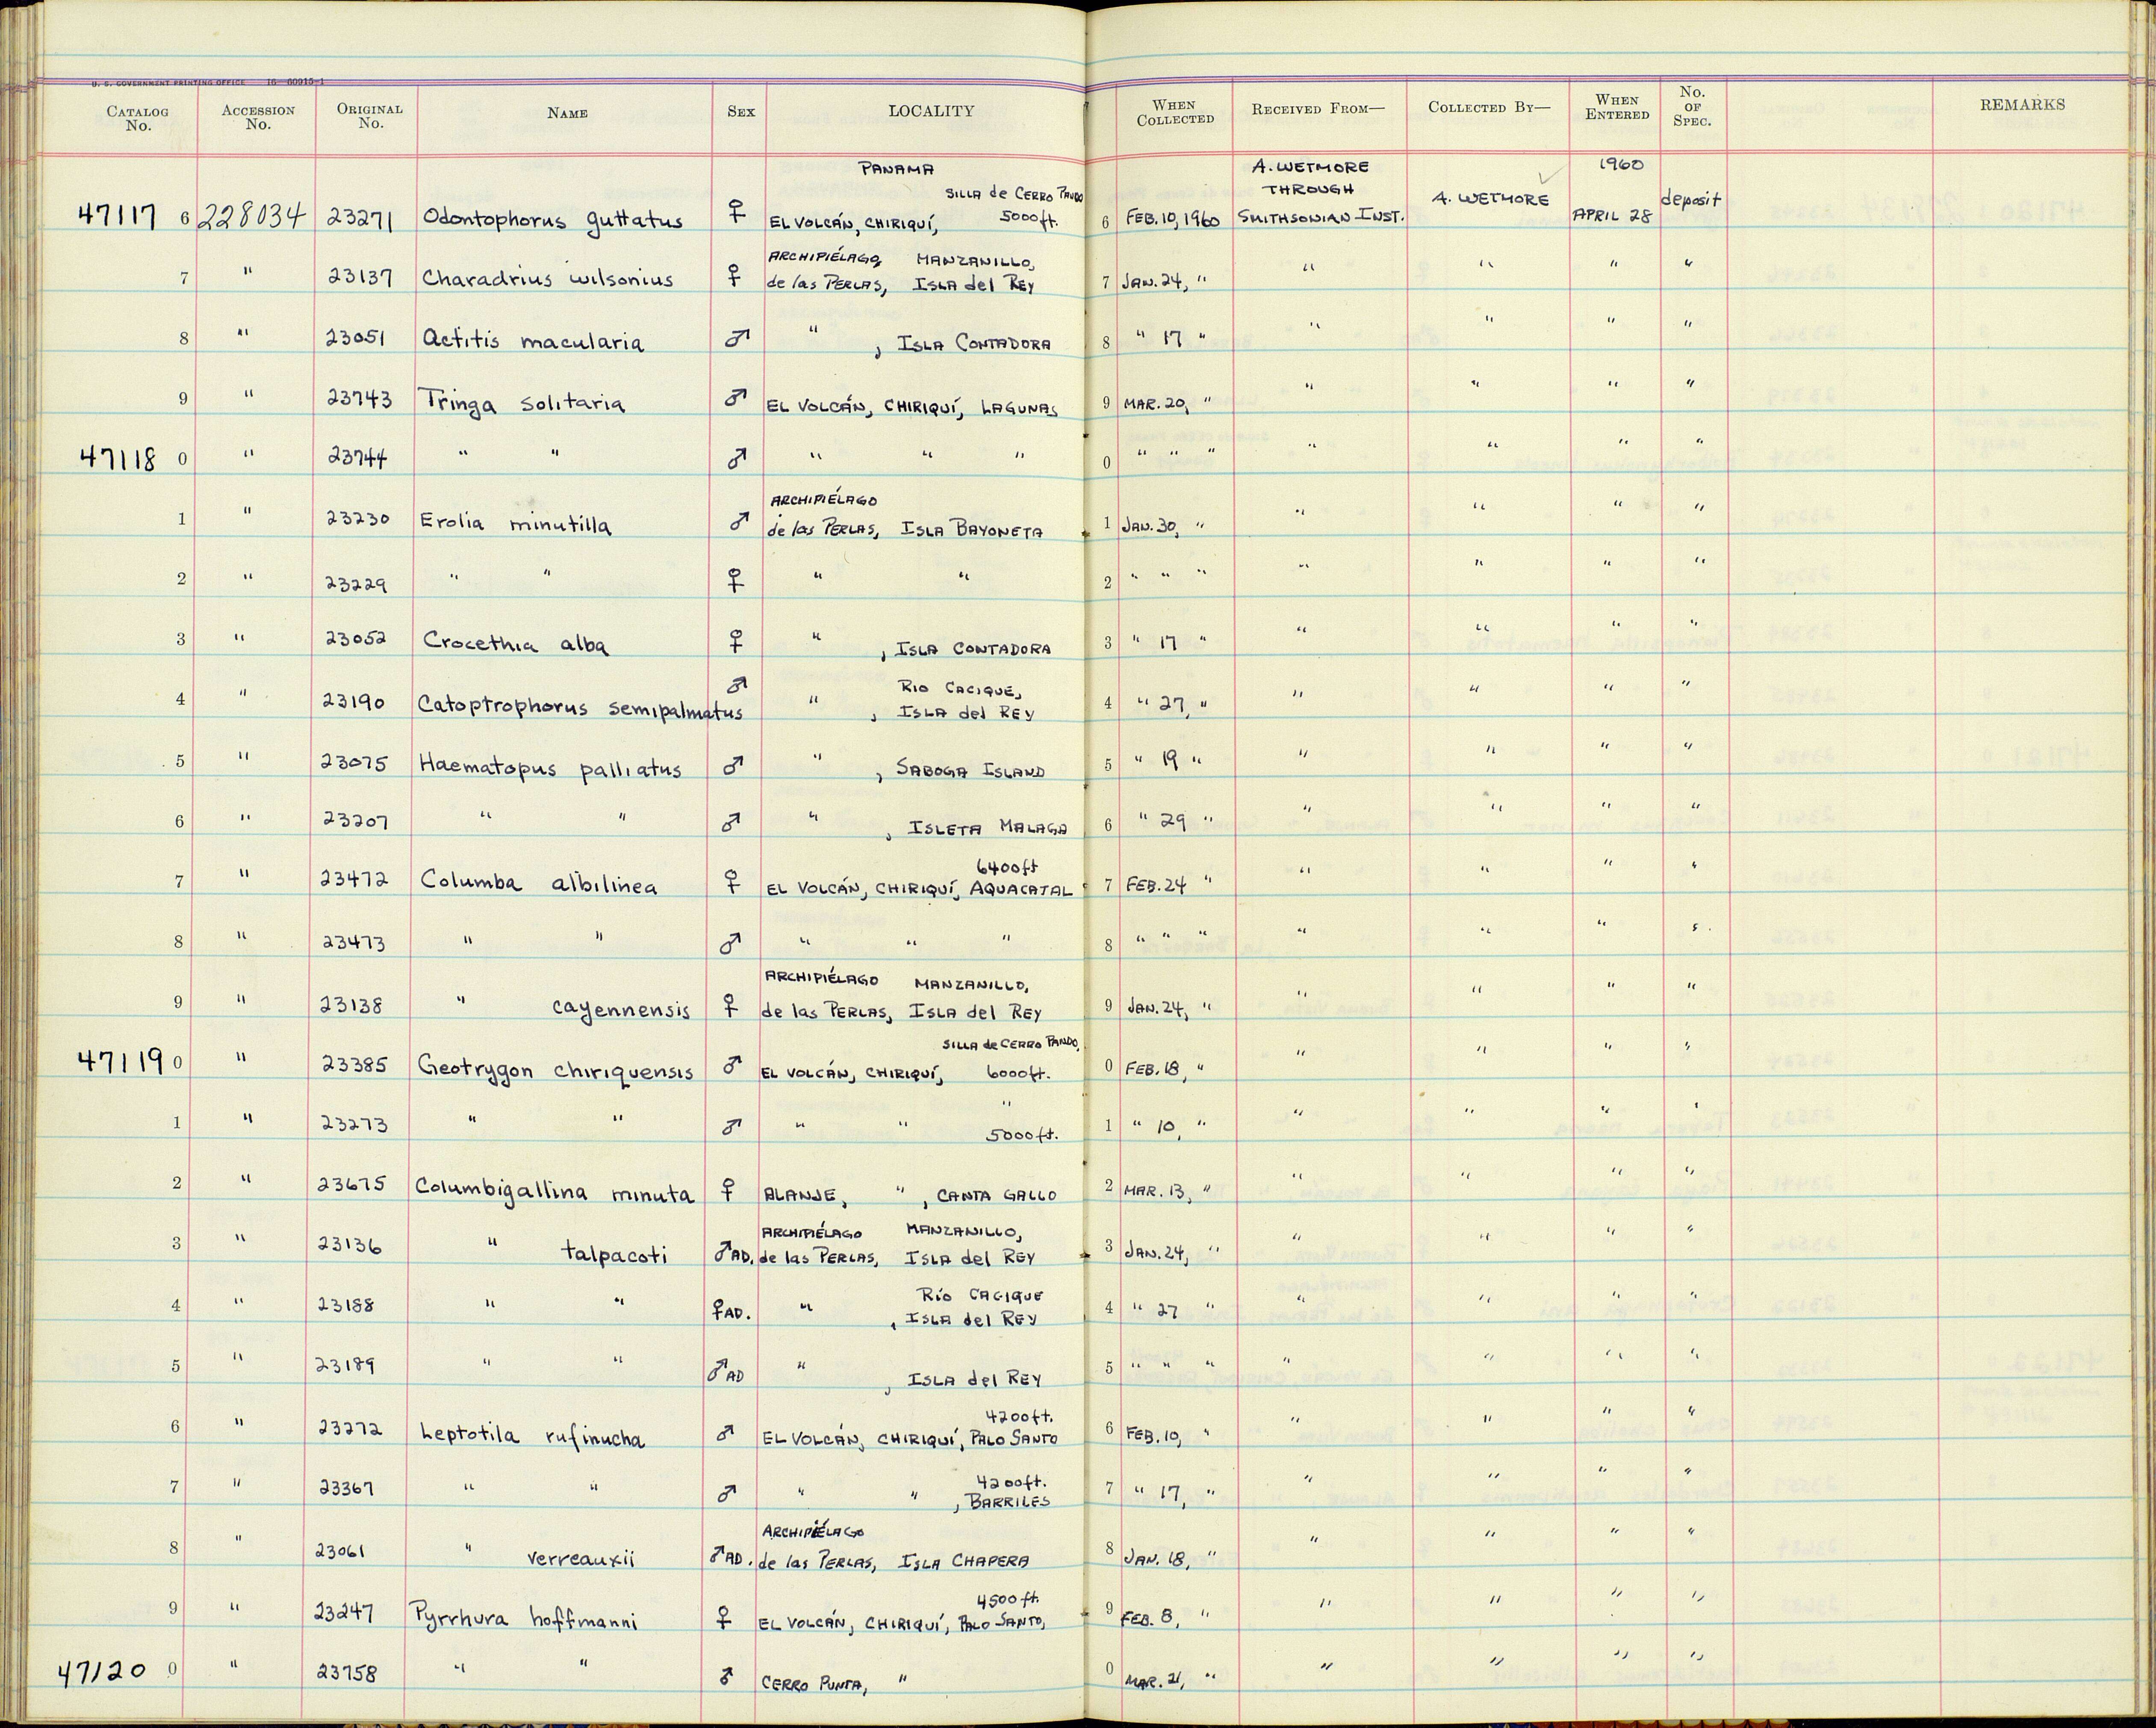 U. S. GOVERNMENT PRINTING OFFICE 16—60915-1
CATALOG No. ACCESSION No. ORIGINAL No. NAME SEX LOCALITY WHEN COLLECTED RECEIVED FROM— COLLECTED BY— WHEN ENTERED No. OF SPEC. REMARKS
PANAMA A. WETMORE 1960
SILLA de CERRO PANDO THROUGH
47117 6 228034 23271 Odontophorus guttatus ♀ EL VOLCÁN, CHIRIQUÍ, 5000ft. 6 FEB. 10, 1960 SMITHSONIAN INST. A. WETMORE APRIL 28 deposit
ARCHIPIÉLAGO, MANZANILLO,
7 " 23137 Charadrius wilsonius ♀ de las PERLAS, ISLA del REY 7 JAN. 24, " " " " "
8 " 23051 Actitis macularia ♂ " , ISLA CONTADORA 8 " 17 " " " " "
9 " 23743 Tringa solitaria ♂ EL VOLCÁN, CHIRIQUÍ, LAGUNAS 9 MAR. 20, " " " " "
47118 0 " 23744 " " ♂ " " " 0 " " " " " " "
ARCHIPIÉLAGO
1 " 23230 Erolia minutilla ♂ de las PERLAS, ISLA BAYONETA 1 JAN. 30, " " " " "
2 " 23229 " " ♀ " " 2 " " " " " " "
3 " 23052 Crocethia alba ♀ " , ISLA CONTADORA 3 " 17 " " " " "
RIO CACIQUE,
4 " 23190 Catoptrophorus semipalmatus ♂ " , ISLA del REY 4 " 27, " " " " "
5 " 23075 Haematopus palliatus ♂ " , SABOGA ISLAND 5 " 19 " " " " "
6 " 23207 " " ♂ " , ISLETA MALAGA 6 " 29 " " " " "
6400ft
7 " 23472 Columba albilinea ♀ EL VOLCÁN, CHIRIQUÍ, AQUACATAL 7 FEB. 24 " " " " "
8 " 23473 " " ♂ " " " 8 " " " " " " "
ARCHIPIÉLAGO MANZANILLO,
9 " 23138 " cayennensis ♀ de las PERLAS, ISLA del REY 9 JAN. 24, " " " " "
SILLA de CERRO PANDO,
47119 0 " 23385 Geotrygon chiriquensis ♂ EL VOLCÁN, CHIRIQUÍ, 6000ft. 0 FEB. 18, " " " " "
"
1 " 23273 " " ♂ " " 5000ft. 1 " 10, " " " " "
2 " 23675 Columbigallina minuta ♀ ALANJE, " , CANTA GALLO 2 MAR. 13, " " " " "
ARCHIPIÉLAGO MANZANILLO,
3 " 23136 " talpacoti ♂AD. de las PERLAS, ISLA del REY 3 JAN. 24, " " " " "
Río CACIQUE
4 " 23188 " " ♀AD. " , ISLA del REY 4 " 27 " " " " "
5 " 23189 " " ♂AD " , ISLA del REY 5 " " " " " " "
4200ft.
6 " 23272 Leptotila rufinucha ♂ EL VOLCÁN, CHIRIQUÍ, PALO SANTO 6 FEB. 10, " " " " "
4200ft.
7 " 23367 " " ♂ " " , BARRILES 7 " 17, " " " " "
ARCHIPIÉLAGO
8 " 23061 " verreauxii ♂AD. de las PERLAS, ISLA CHAPERA 8 JAN. 18, " " " " "
4500ft.
9 " 23247 Pyrrhura hoffmanni ♀ EL VOLCÁN, CHIRIQUÍ, PALO SANTO, 9 FEB. 8, " " " " "
47120 0 " 23758 " " ♂ CERRO PUNTA, " 0 MAR. 21, " " " " "